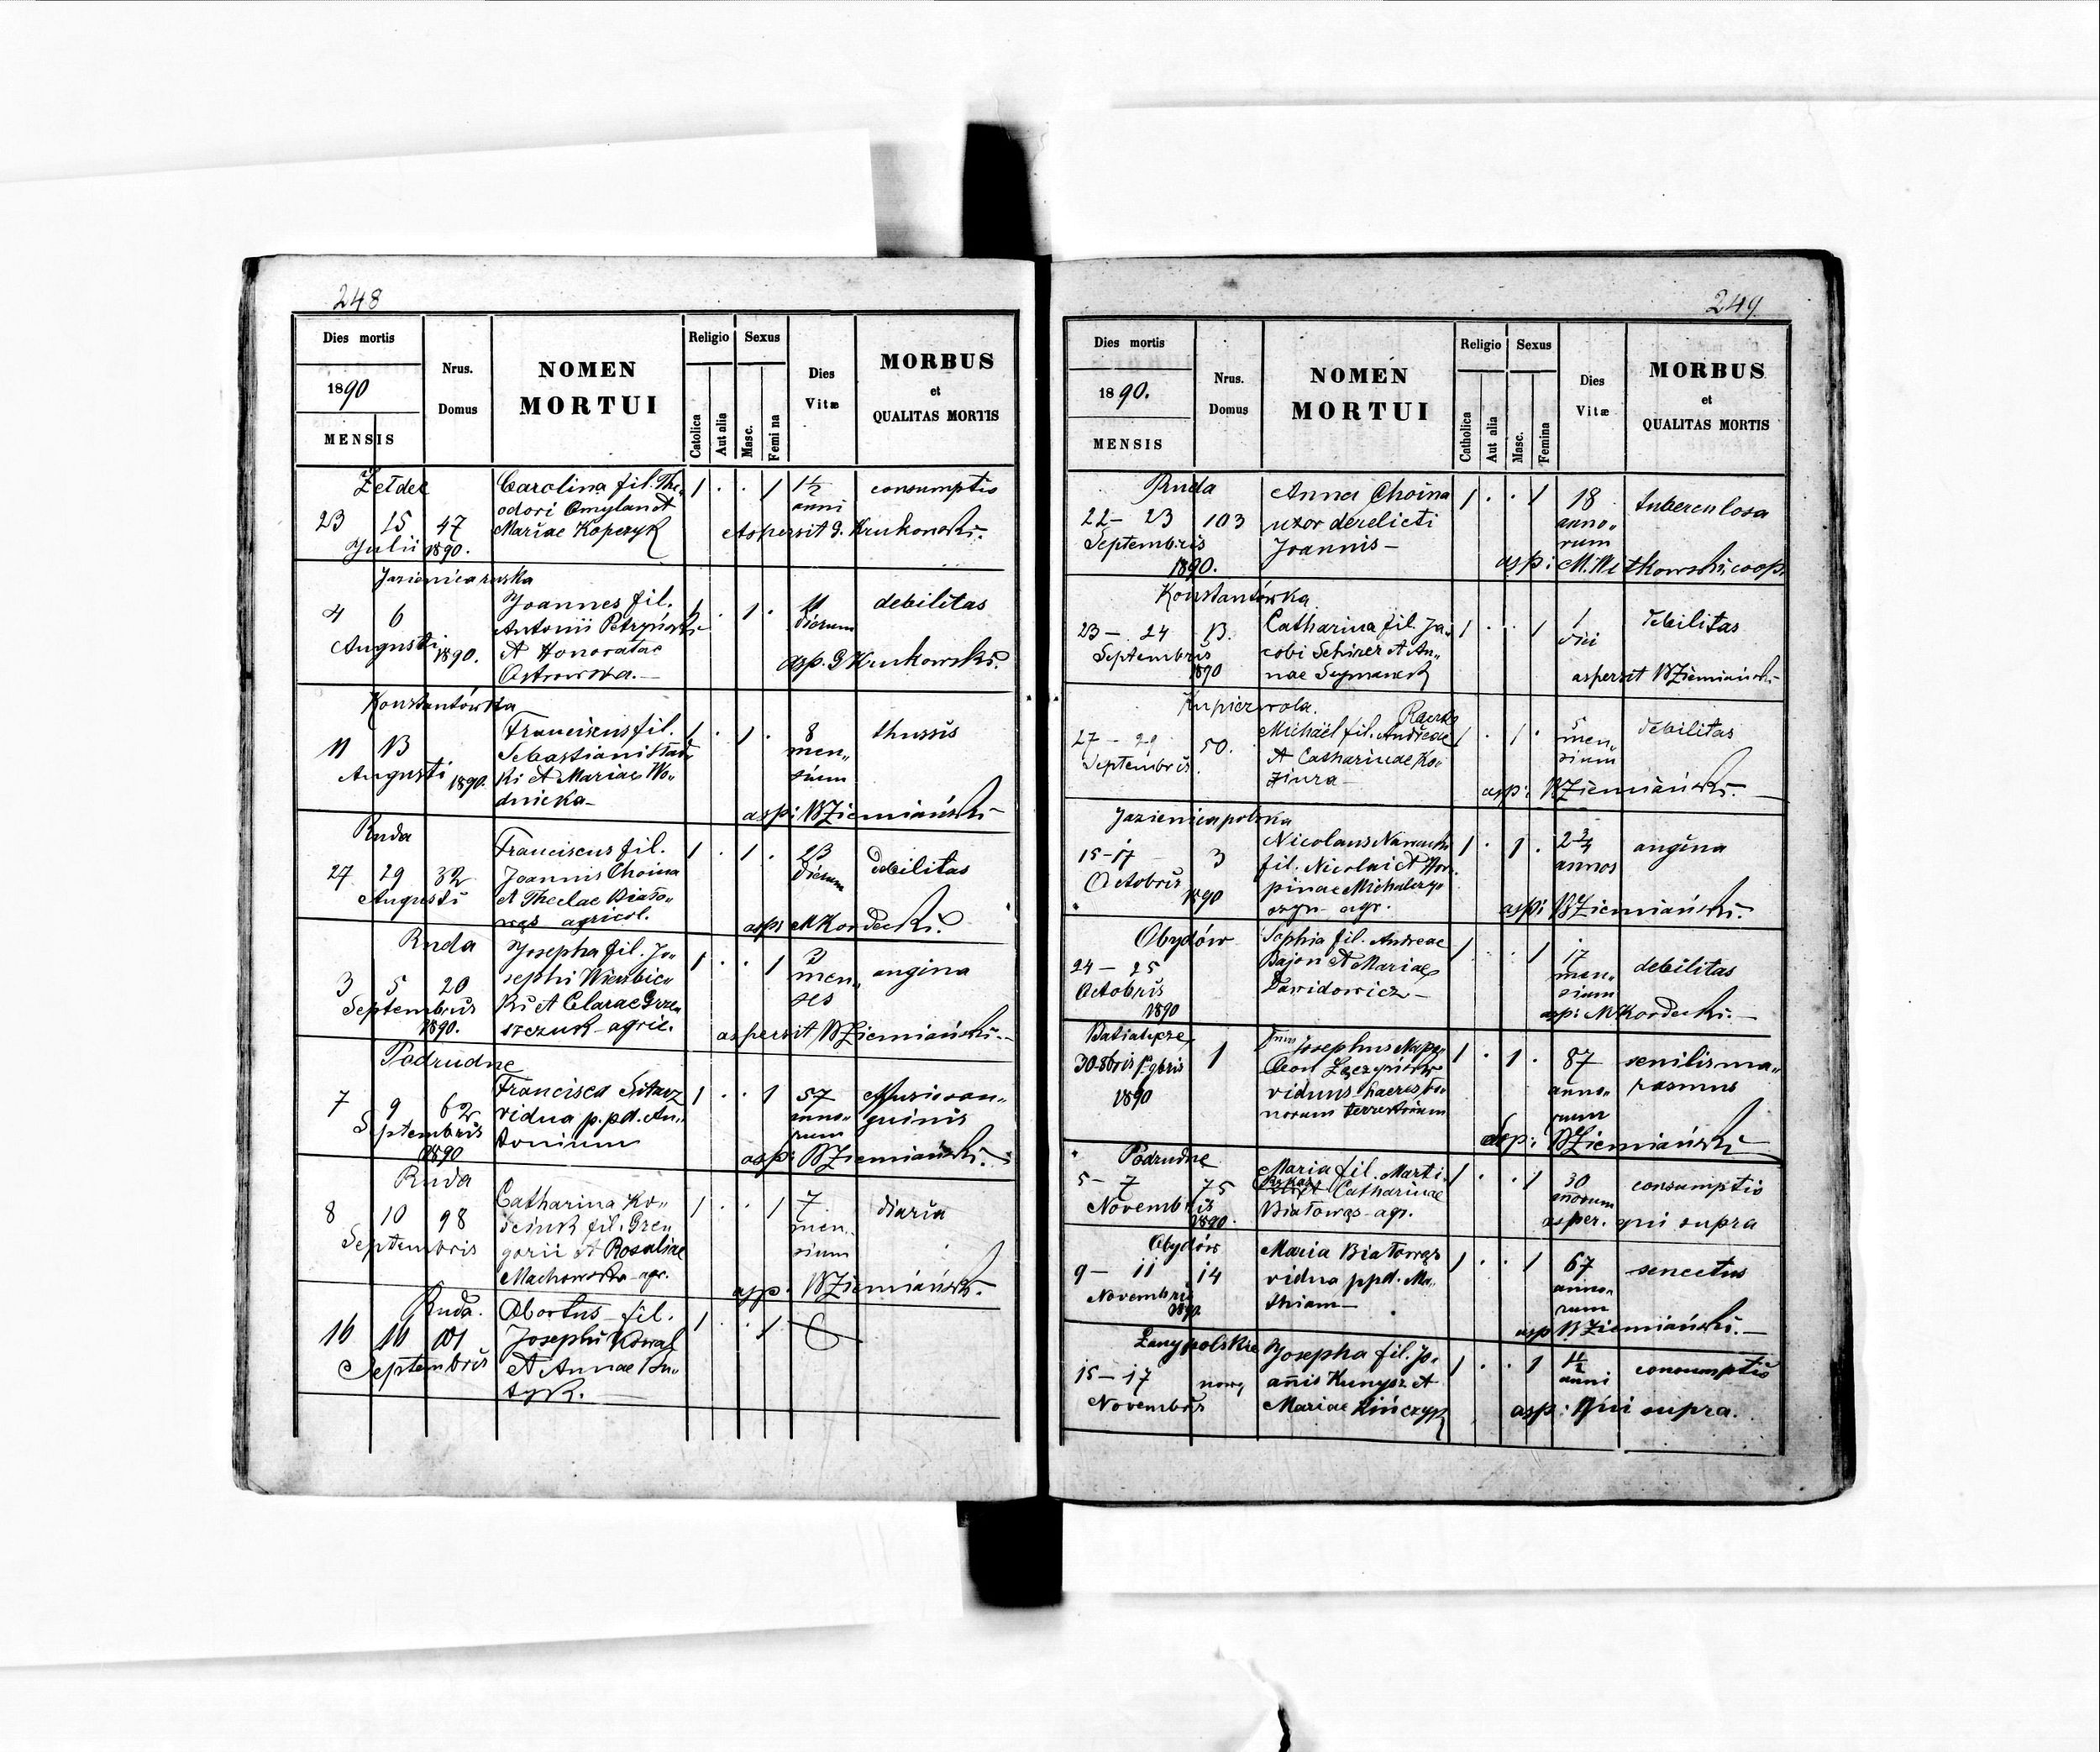 248
Dies mortis
1890
MENSIS
Nrus.
Domus
NOMEN
MORTUI
Religio
Catolica
Aut alia
Sexus
Masc.
Femi na
Dies
Vitæ
MORBUS
et
QUALITAS MORTIS
Żeldec
23 25 47
Julii 1890.
Carolina fil. The„
odori Omylan et
Mariae Kopczyk
1 . . 1
1½
anni
consumptio
Aspersit G. Krukowski.
Jazienica ruska
4 6
Augusti 1890.
Joannes fil.
Antonii
et Honoratae
Ostrowska.—
1 . 1 .
11
dierum
debilitas
asp. G Krukowski.
Konstantówka
11 13
Augusti 1890.
Franciscus fil.
Sebastiani
ki et Mariae Wo„
dnicka—
1 . 1 .
8
men„
sium
thussis
asp: WZiemiański
Ruda
27 29 32
Augusti
Franciscus fil.
Joannis Choina
et Theclae Biało„
wąs agricol.
1 . 1 .
23
dierum
debilitas
asp: MKordecki.
Ruda
3 5 20
Septembris
1890.
Josepha fil. Jo„
sephi Wierzbic„
ki et Clarae Grze„
szczuk—agric.
1 . . 1
3
men„
ses
angina
aspersit WZiemiański.—
Podrudne
7 9 62
Septembris
1890
Francisca Sitarz
vidua p. pd. An„
tonium
1 . . 1
57
anno„
rum
effusio san„
guinis
asp: WZiemiański.
Ruda
8 10 98
Septembris
Catharina Ko„
fil. Gre„
gorii et Rosaliae
Machowska—agr.
1 . . 1
7
men.
sium
diaria
asp. WZiemiański.
Ruda.
16 16 101
Septembris
Abortus—fil.
Josephi Kowal
et Annae
1 . . 1
249
Dies mortis
1890.
MENSIS
Nrus.
Domus
NOMEN
MORTUI
Religio
Catholica
Aut alia
Sexus
Masc.
Femina
Dies
Vitæ
MORBUS
et
QUALITAS MORTIS
Ruda
22— 23 103
Septembris
1890.
Anna Choina
uxor derelicti
Joannis—
1 . . 1
18
anno„
rum
tuberculosa
asp: M. coop.
Konstantówka
23— 24 13.
Septembris
1890
Catharina fil. Ja„
cobi Schirer et An„
nae
1 . . 1
1
diei
debilitas
aspersit WZiemiański
Kupiczwola.
27— 29 50.
Septembris.
Michaël fil. Andreae
et Catharinae Ko„
ziura—
1 . 1 .
5
men„
sium
debilitas
asp: WZiemiański.—
Jazienica polska
15—17 3
Octobris
1890
Nicolaus
fil. Nicolai et Hor„
pinae Michalczy„
szyn—agr.
1 . 1 .
2¾
annos
angina
asp: WZiemiański.
Obydów
24— 25
Octobris
1890
Sophia fil. Andreae
Bajon et Mariae
Dawidowicz—
1 . . 1
17
men„
sium
debilitas
asp: MKordecki.—
Batiatycze
30 1
1890
Josephus
viduus haeres bo„
norum terrestrium
1 . 1 .
87
anno„
rum
senilis ma„
rasmus
asp: WZiemiański
Podrudne
5— 7 75
Novembris
1890.
Maria fil. Marti.
et Catharinae
Białowąs—agr.
1 . . 1
30
consumptio
asper. qui supra
Obydów
9— 11 14
Novembris
1890.
Maria Białowąs
vidua ppd. Ma„
thiam—
1 . . 1
67
anno„
rum
senectus
asp WZiemiański.—
Łany polskie
15—17 now,
Novembris
Josepha fil. Jo„
annis Kunysz et
Mariae Kińczyk
1 . . 1
1½
anni
consumptio
asp: Qui supra.